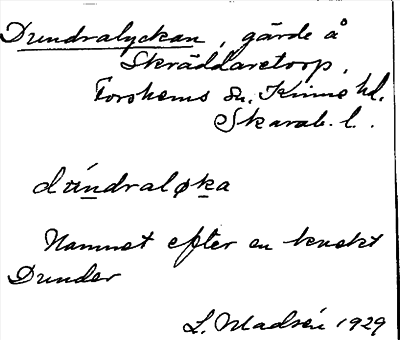 Dundralyckan, gärde å
Skräddaretorp,
Forshems sn. Kinne hd.
Skarab. l.
dúndraløka
Namnet efter en knekt
Dunder
L. Madsén 1929